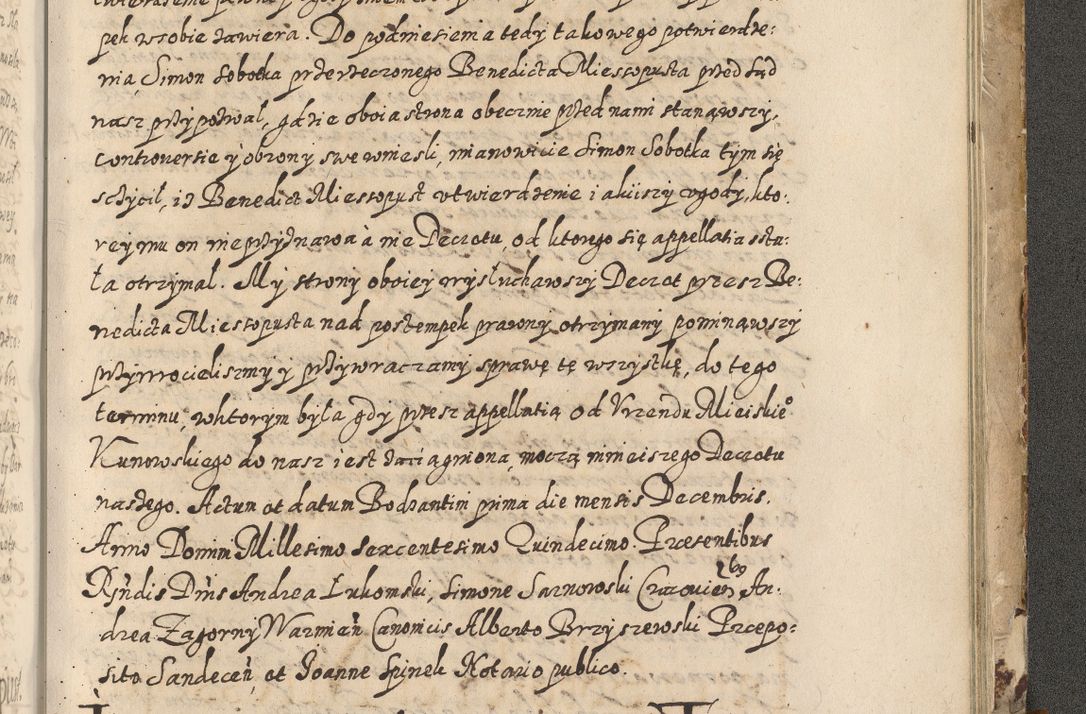 pek w sobie zawiera. Do podniesienia tedy takowego potwierdze:
nia, Simon Sobotka przerzeczonego Benedicta Miesopusta przed sąd
nasz przypozwał, gdzie oboia strona obecznie przed nami stanąwszy,
controversie y obrony swe wniesli, mianowicie Simon Sobotka tym się
sczycił, iż Benedict Miesopust vtwierdzenie iakiiszy vgody, kto:
rey mu on nie przyznawa a nie Decretu, od ktorego się appellatia sta:
ła otrzymał. My strony oboiey wysłuchawszy Decret przesz Be:
nedicta Miesopusta nad postempek prawny otrzymany pominąwszy
przywrocielismy y przywraczamy sprawę tę wszystkę, do tego
terminu, w ktorym była gdy przesz appellatią od Vrzendu Mieiskie°
Kunowskiego do nasz iest zaciągniona, moczą ninieiszego Decretu
naszego. Actum et datum Bodzantini prima die mensis Decembris.
Anno Domini Millesimo Sexcentesimo Quindecimo. Præsentibus
Rn̄dis Dn̄is Andrea Łukomski, Simone Sarnowski Cracovien̄bg An:
drea Zagorny Warmien̄ Canonicis Alberto Brzyszewski Præpo:
sito Sandecen̄, et Joanne Spinek Notario publico.